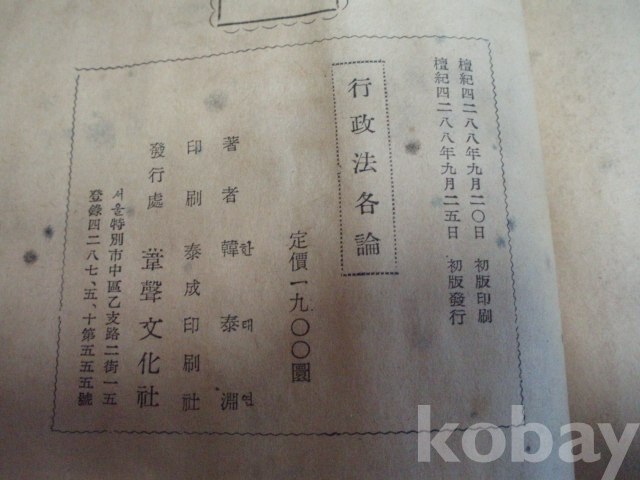 檀紀四二八八年九月二〇日 初版印刷
檀紀四二八八年九月二五日 初版發行
行政法各論
定價一九〇〇圜
著者 韓泰淵
한대연
印刷 泰成印刷社
發行處 葦聲文化社
서울特別市中區乙支路二街一五
登錄四二八七、五、十第五五五號
kobay